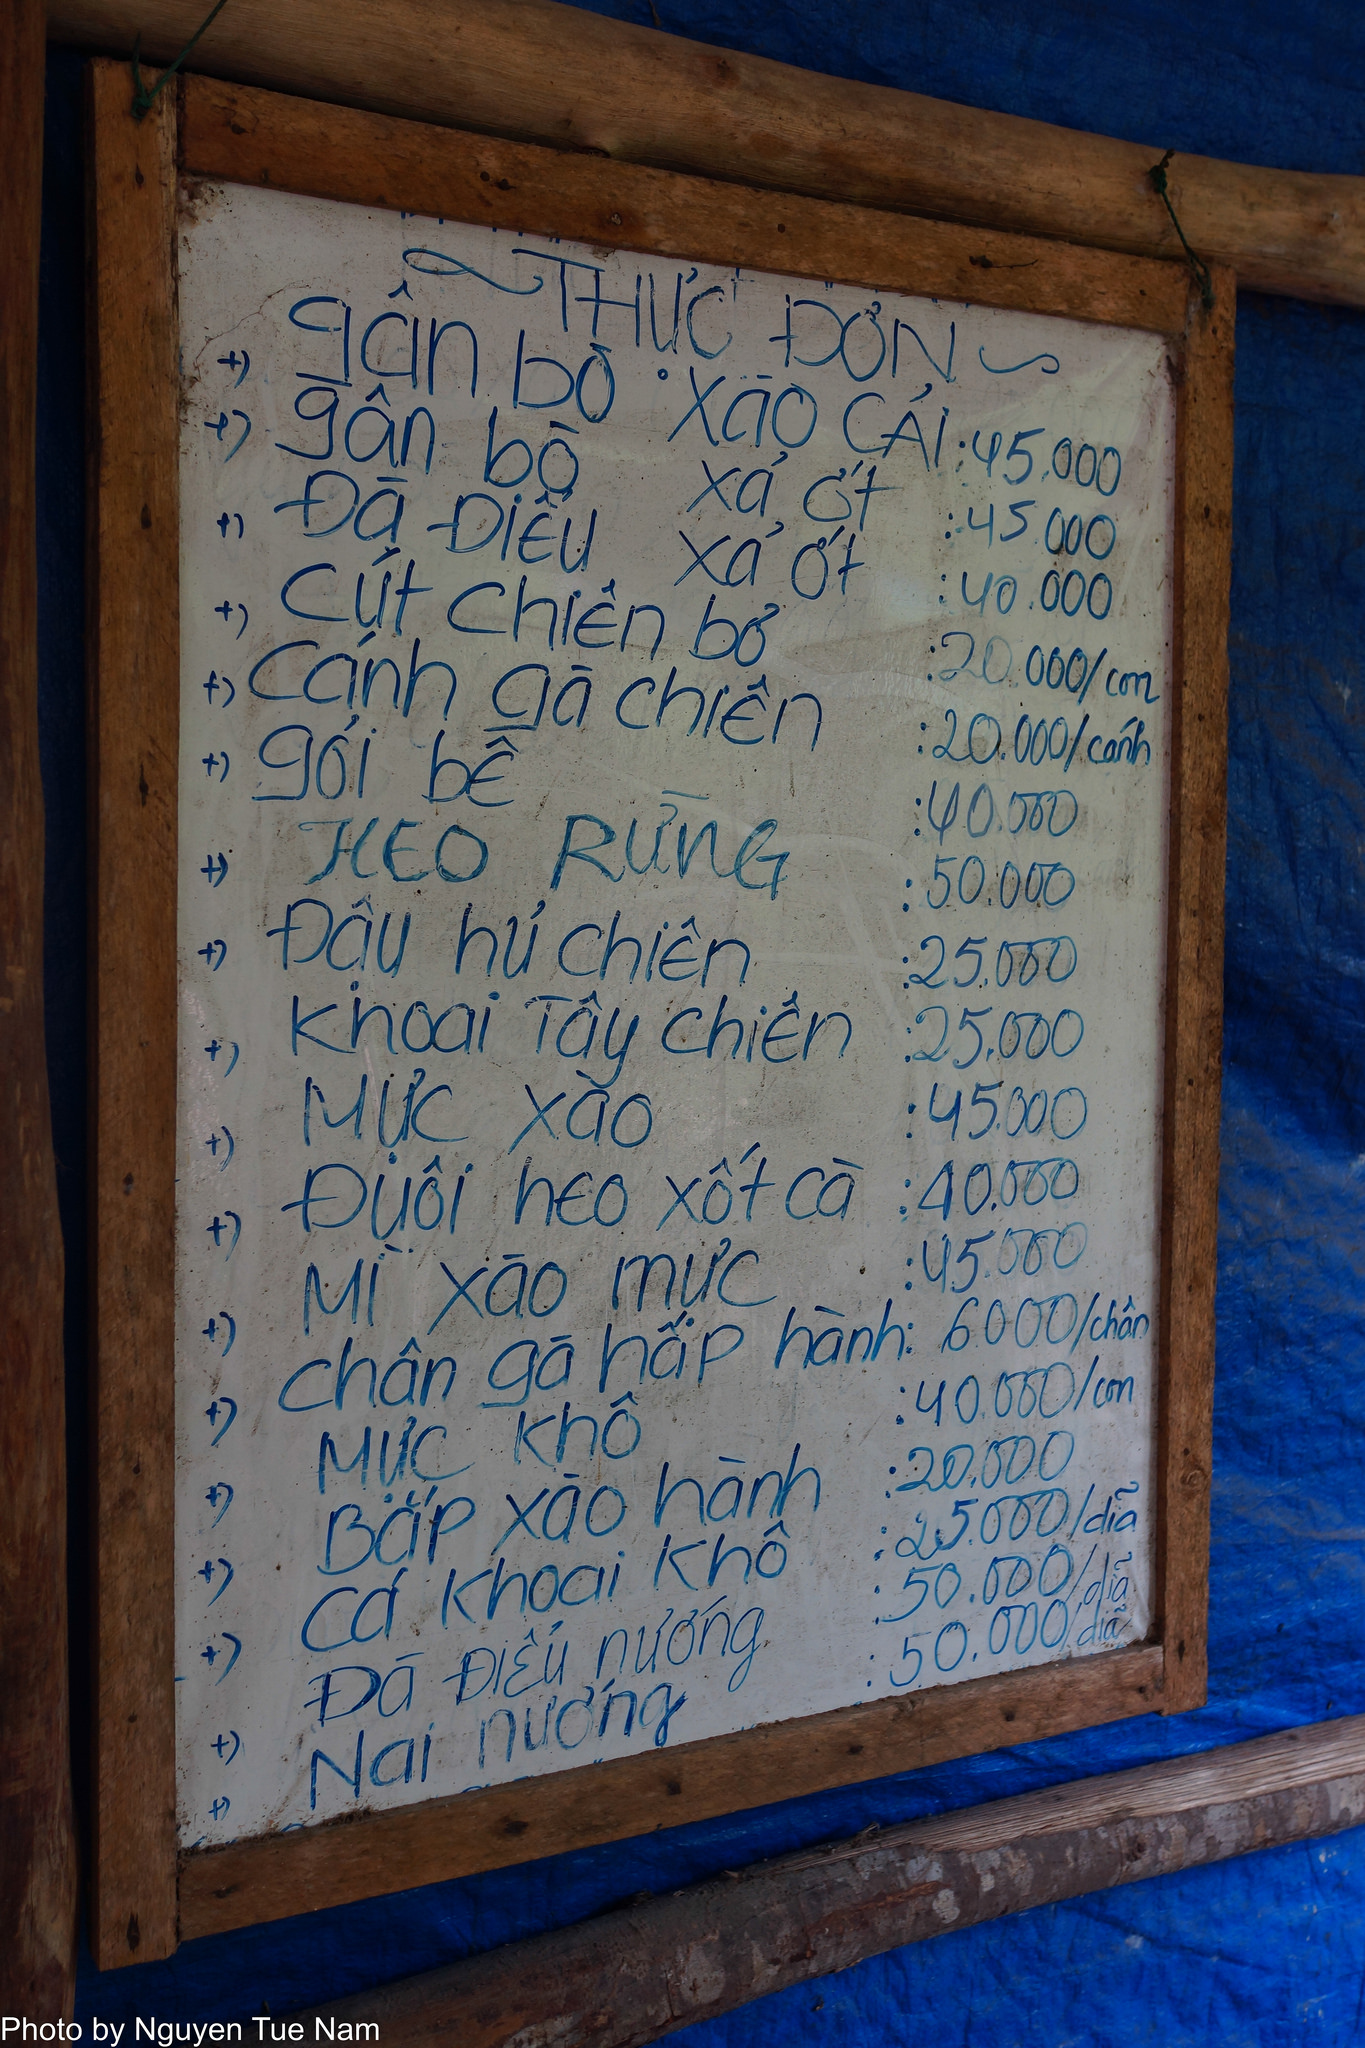 THỰC ĐƠN
+) gân bò xào CẢI : 45.000
+) gân bò xả ớt : 45.000
+) Đà Điểu xả ớt : 40.000
+) Cút chiên bơ : 20.000/con
+) Cánh gà chiên : 20.000/cánh
+) gỏi bê : 40.000
+) HEO RỪNG : 50.000
+) Đậu hủ chiên : 25.000
+) Khoai Tây chiên : 25.000
+) Mực xào : 45.000
+) Đuôi heo xốt cà : 40.000
+) Mì xào mực : 45.000
+) chân gà hấp hành : 6000/chân
+) Mực khô : 40.000/con
+) Bắp xào hành : 20.000
+) Cá khoai khô : 25.000/dĩa
+) Đà Điểu nướng : 50.000/dĩa
+) Nai nướng : 50.000/dĩa
Photo by Nguyen Tue Nam